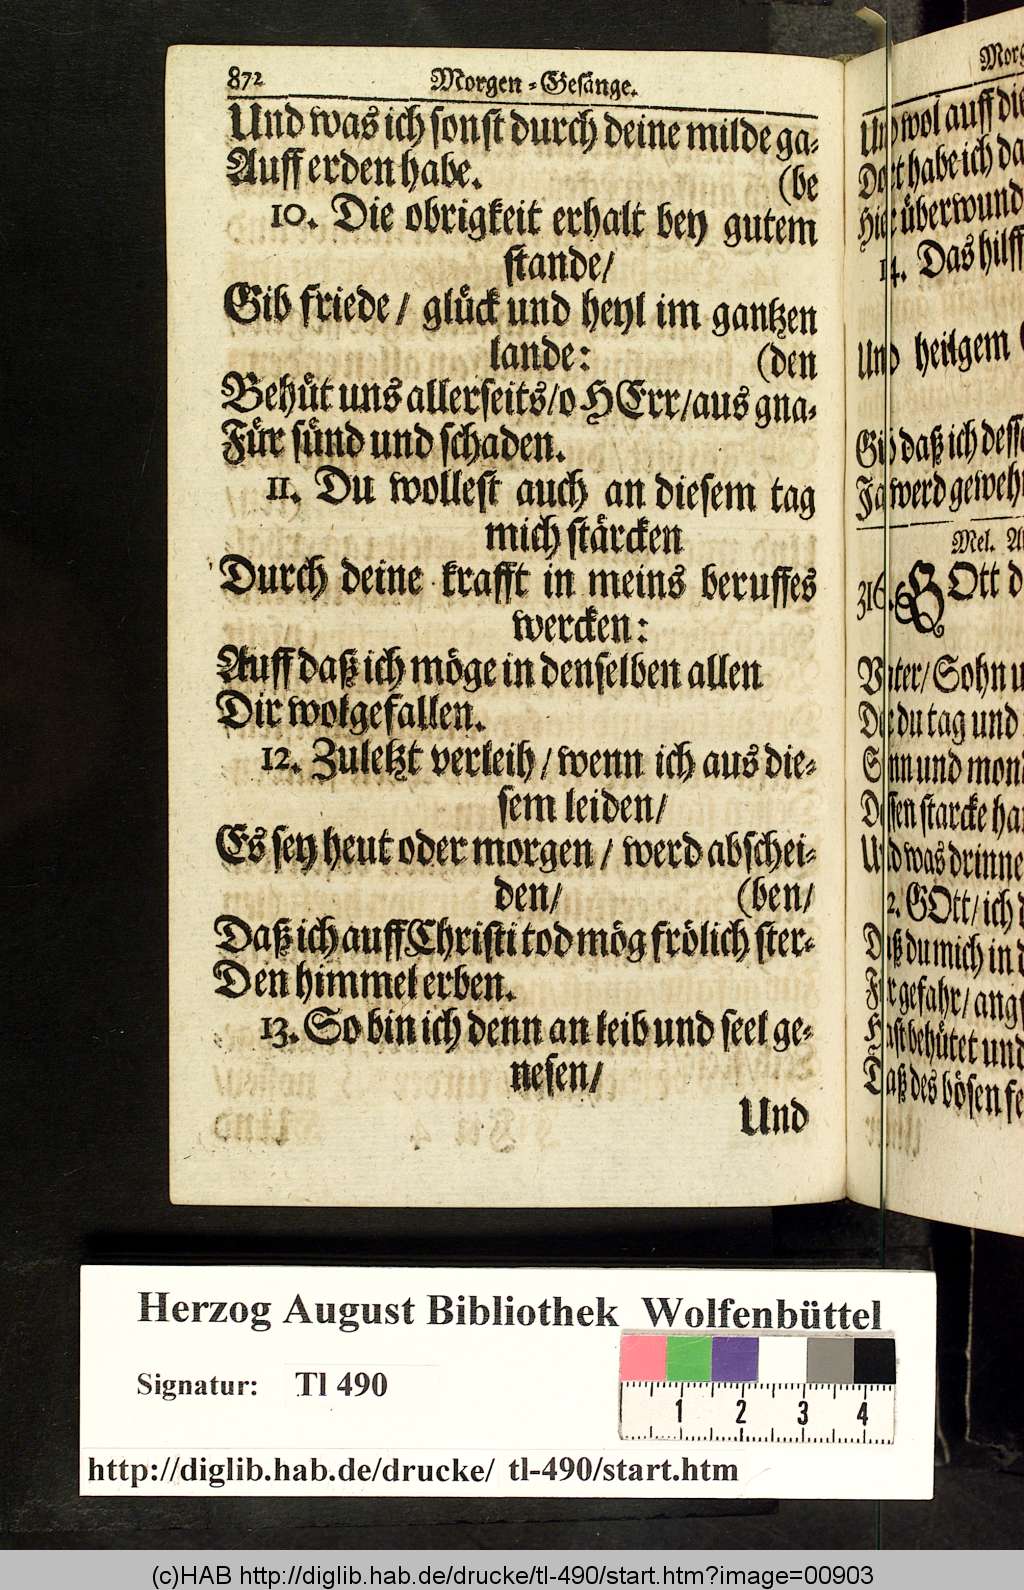 872 Morgen-Gesänge.
Und was ich sonst durch deine milde ga-
Auff erden habe. (be
10. Die obrigkeit erhalt bey gutem
stande/
Gib friede/ glück und heyl im gantzen
lande: (den
Behüt uns allerseits/o HErr/aus gna-
Für sünd und schaden.
11. Du wollest auch an diesem tag
mich stärcken
Durch deine krafft in meins beruffes
wercken:
Auff daß ich möge in denselben allen
Dir wolgefallen.
12. Zuletzt verleih/wenn ich aus die-
sem leiden/
Es sey heut oder morgen/ werd abschei-
den/ (ben/
Daß ich auff Christi tod mög frölich ster-
Den himmel erben.
13. So bin ich denn an leib und seel ge-
nesen/
Und
Und wol auff die
Dort habe ich da
Hier überwund
14. Das hilff
Und heilgem
Gib daß ich desse
Ja werd geweh
Mel.
316. GOtt d
Vater/Sohn u
Der du tag und
Sonn und mon
Dessen starcke ha
Und was drinne
2. GOtt/ich
Daß du mich in d
Für gefahr/angst
Hast behütet und
Daß des bösen fe
Herzog August Bibliothek Wolfenbüttel
Signatur: Tl 490
1 2 3 4
http://diglib.hab.de/drucke/ tl-490/start.htm
(c)HAB http://diglib.hab.de/drucke/tl-490/start.htm?image=00903